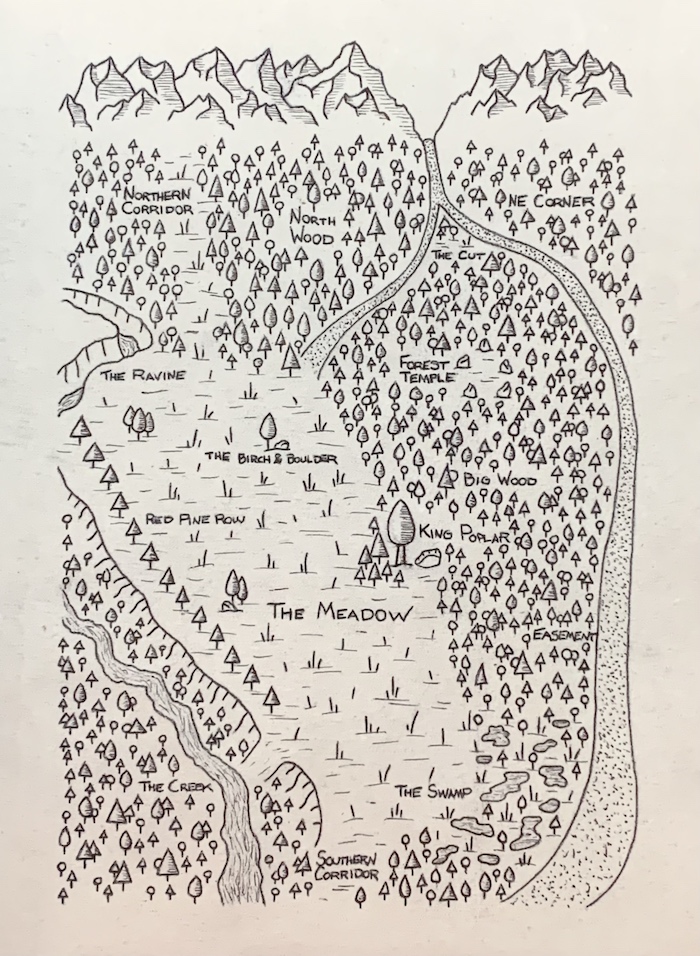 NORTHERN
CORRIDOR
NORTH
WOOD
NE CORNER
THE CUT
FOREST
TEMPLE
THE RAVINE
THE BIRCH & BOULDER
BIG WOOD
RED PINE ROW
KING POPLAR
THE MEADOW
EASEMENT
THE CREEK
THE SWAMP
SOUTHERN
CORRIDOR